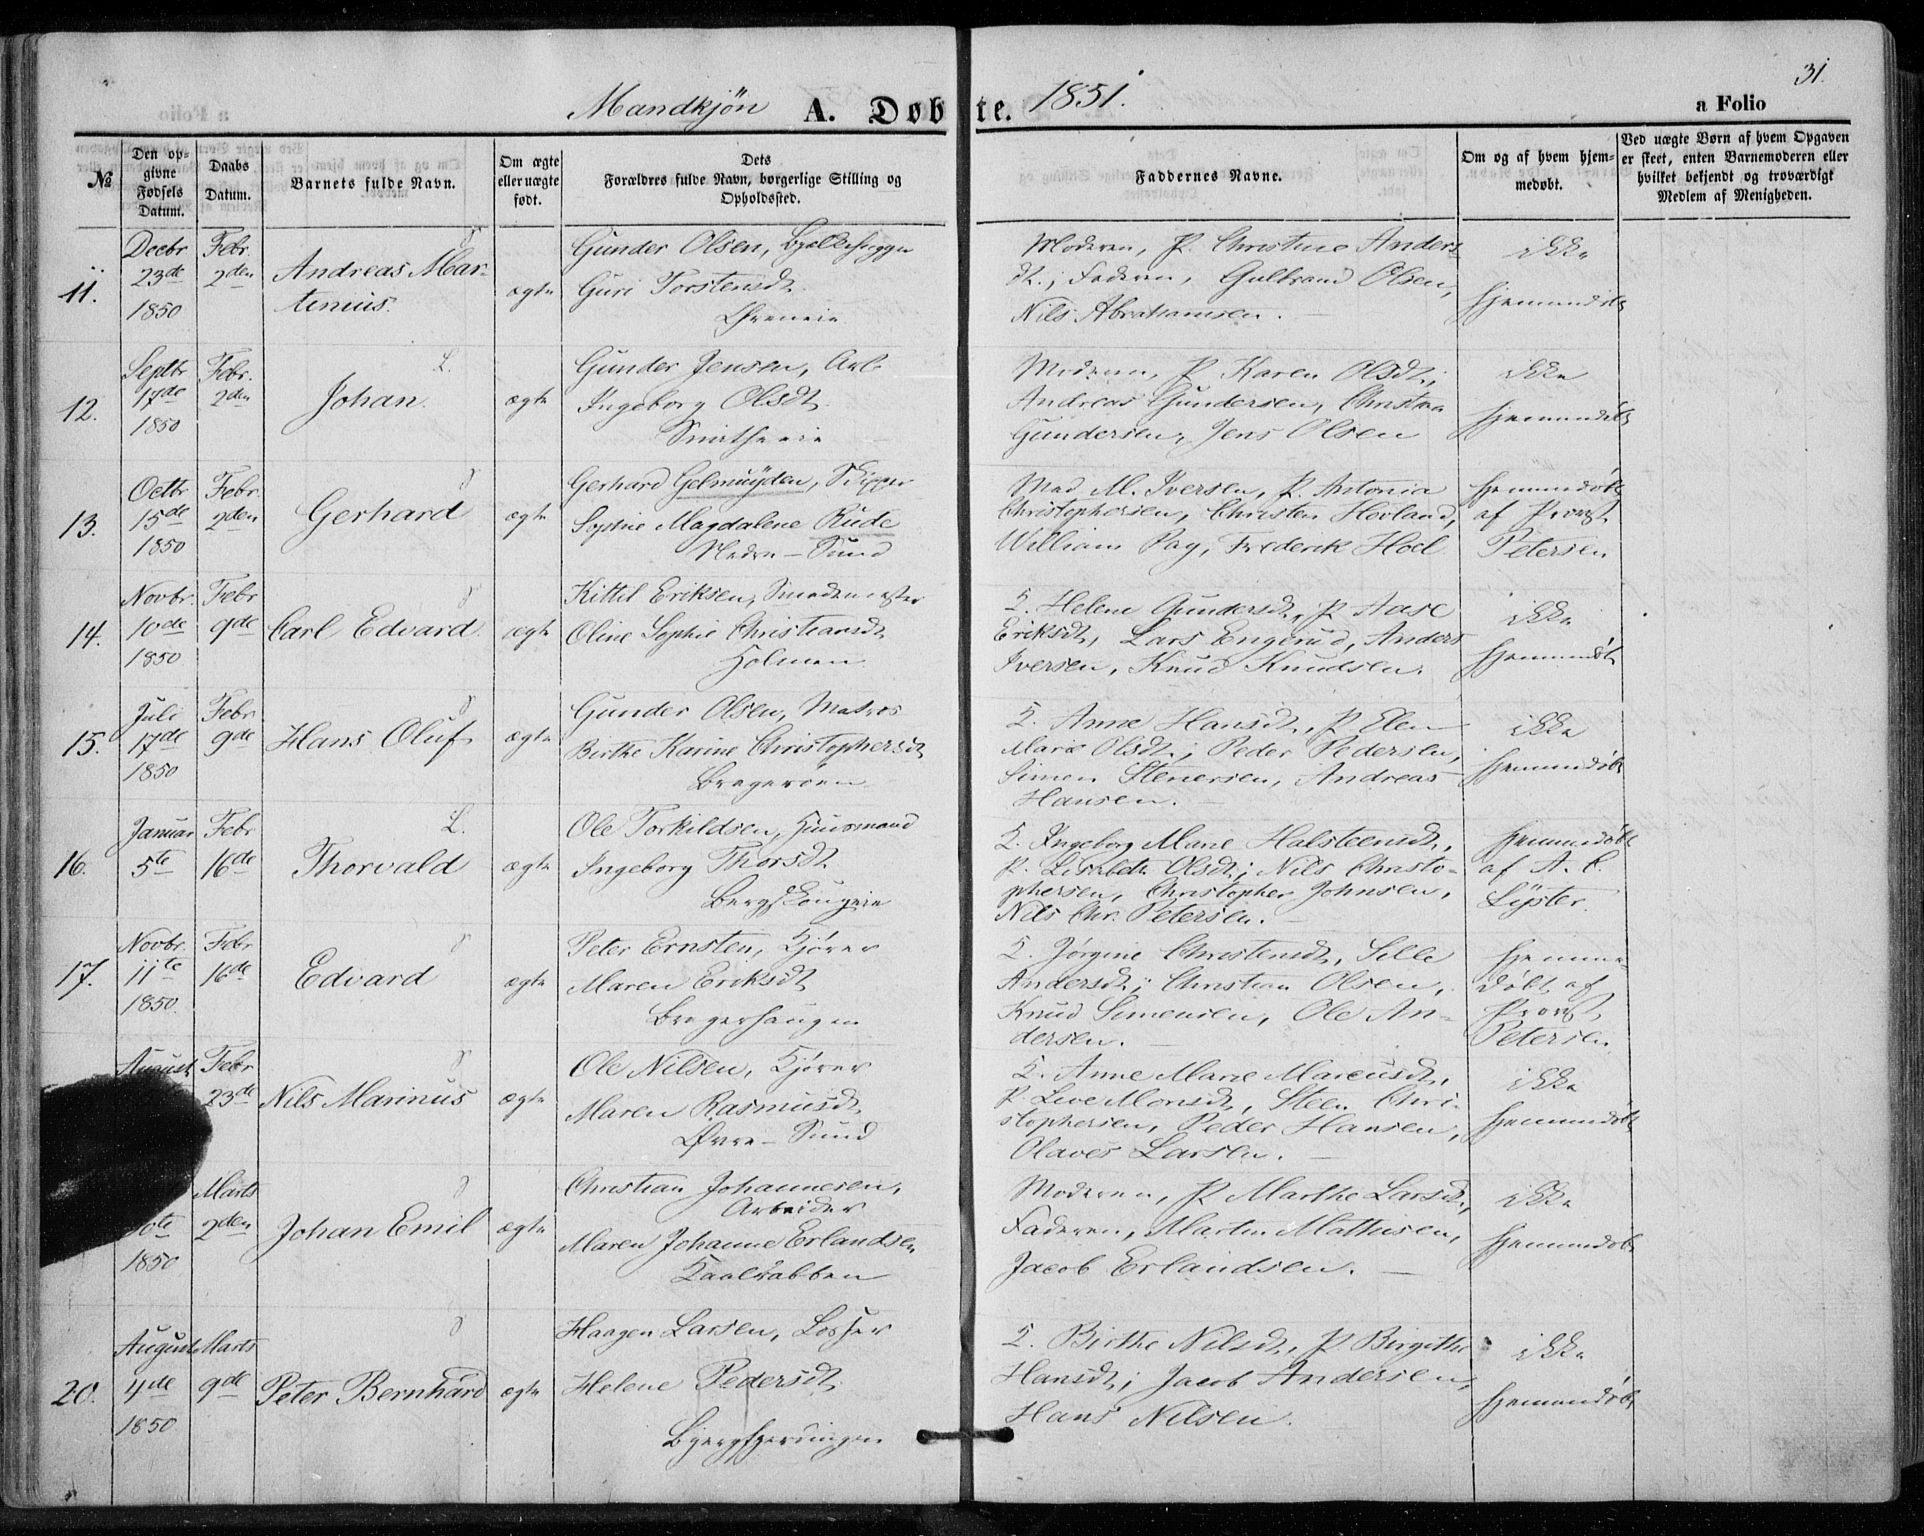 31.
Mandkjön A. Døbte. 1851.
a Folio
№
Den op-
givne
Fødsels
Datum.
Daabs
Datum.
Barnets fulde Navn.
Om ægte
eller uægte
født.
Dets
Forældres fulde Navn, borgerlige Stilling og
Opholdssted.
Faddernes Navne.
Om og af hvem hjem-
medøbt.
Ved uægte Børn af hvem Opgaven
er skeet, enten Barnemoderen eller
hvilket bekjendt og troværdigt
Medlem af Menigheden.
11.
Decbr
23de
1850
Febr.
2den
Andreas Mar-
tinius.
ægte
Gunder Olsen,
Guri Torstensdt.
Moderen, P. Christine Anders-
dt.; Faderen, Gulbrand Olsen,
Nils Abrahamsen.
ikke
hjemmedøbt
12.
Septbr
17de
1850
Febr.
2den
Johan.
L.
ægte
Gunder Jensen, Arb.
Ingeborg Olsdt.
Smitheeie
Moderen, P. Karen Olsdt;
Andreas Gundersen, Christian
Gundersen, Jens Olsen
ikke
hjemmedøbt
13.
Octbr
15de
1850
Febr.
2den
Gerhard
ægte
Gerhard Gelmuÿden, Skipper
Sophie Magdalene Rude
Nedre-Sund
Mad. M. Iversen, P. Antonia
Christophersen, Christen Hovland,
William Pay, Frederik Hoel
hjemmedøbt
af Provst
Petersen
14.
Novbr.
10de
1850
Febr
9de
Carl Edvard.
ægte
Kittil Eriksen, Smedemester
Oline Sophie Christiansdt
Holmen
K. Helene Gundersdt, P. Aase
Eriksdt, Lars Engerud, Anders
Iversen, Knud Knudsen.
ikke
hjemmedøbt
15.
Juli
17de
1850
Febr
9de
Hans Oluf
ægte
Gunder Olsen, Matros
Birthe Karine Christophersdt
Brageroen
K. Anne Hansdt, P. Elen
Marie Olsdt; Peder Pedersen,
Simen Stenersen, Andreas
Hansen.
ikke
hjemmedøbt
16.
Januar
5te
Febr
16de
Thorvald
L.
ægte
Ole Torkildsen, Huusmand
Ingeborg Thorsdt.
Bergskougeie
K. Ingeborg Marie Halsteensdt,
P. Lisabeth Olsdt; Nils Christo-
phersen, Christopher Johnsen,
Nils Chr. Petersen.
hjemmedøbt
af A. C.
Lÿster.
17.
Novbr.
11te
1850.
Febr
16de
Edvard
ægte
Peter Ernsten, Kjører
Maren Eriksdt
Bragerhaugen
K. Jørgine Christensdt, Sille
Andersdt; Christian Olsen,
Knud Simensen, Ole An-
dersen.
hjemme-
døbt af
Provst
Petersen
August
Febr
23de
Nils Marinus
ægte
Ole Nilsen, Kjører
Maren Rasmusdt
Øvre-Sund
K. Anne Marie Marcusdt,
P. Live Monsdt, Steen Chri-
stophersen, Peder Hansen,
Olaves Larsen.
ikke
hjemmedøbt
1850
Marts
2den
Johan Emil
ægte
Christian Johannesen,
Arbeider
Maren Johanne Erlandsen
Kaalrabben
Moderen, P. Marthe Larsdt,
Faderen, Martin Mathisen,
Jacob Erlandsen.
ikke
hjemmedøbt
20.
August
4de
1850
Marts
9de
Peter Bernhard
ægte
Haagen Larsen, Losser
Helene Pedersdt.
K. Birthe Nilsdt, P. Birgithe
Hansdt; Jacob Andersen,
Hans Nilsen.
ikke
hjemmedøbt